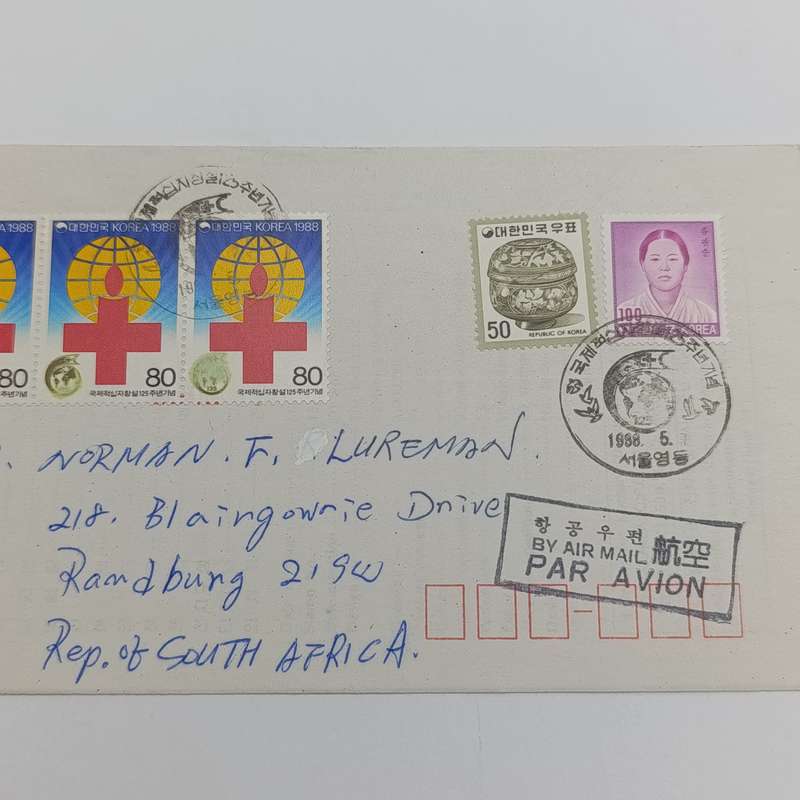 국제적십자창설125주년기념
KOREA 1988
대한민국 KOREA 1988
80
국제적십자창설125주년기념
대한민국 KOREA 1988
80
국제적십자창설125주년기념
대한민국우표
50
REPUBLIC OF KOREA
유관순
100
KOREA
국제적십자창설125주년기념
125
1988. 5.
서울영동
NORMAN. F. LUREMAN.
218. Blairgowrie Drive
Randburg 2194
Rep. of SOUTH AFRICA.
항공우편
BY AIR MAIL 航空
PAR AVION